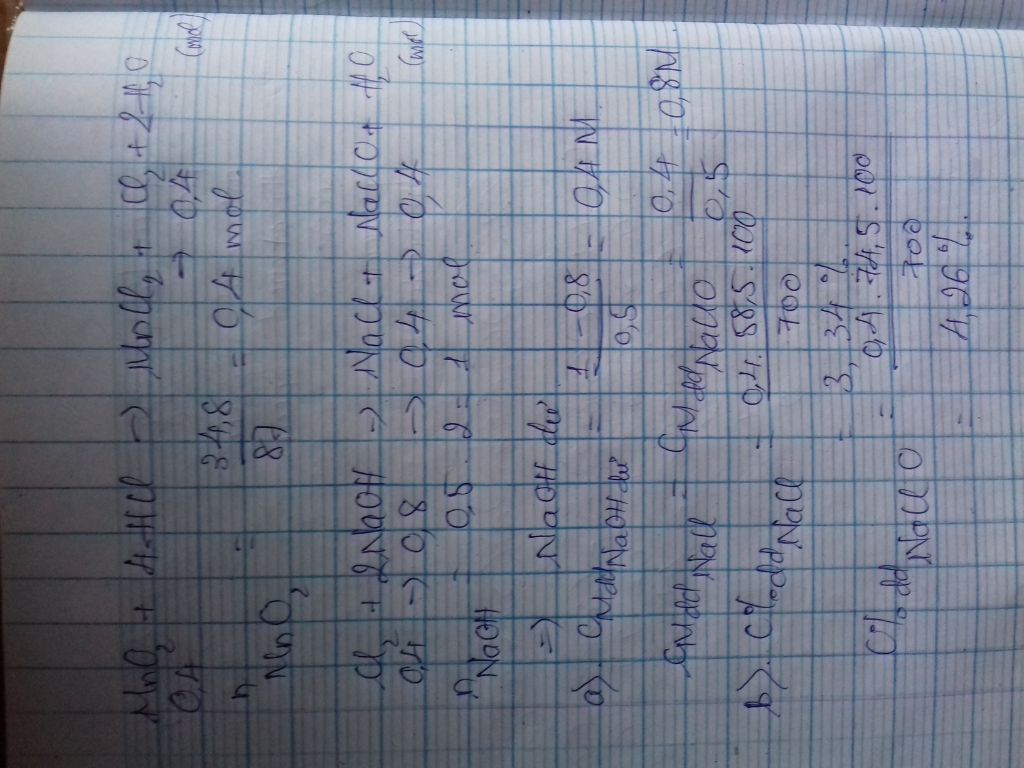 MnO2 + 4HCl → MnCl2 + Cl2 + 2H2O
0,4 → 0,4 (mol)
nMnO2 = 34,8/87 = 0,4 mol.
Cl2 + 2NaOH → NaCl + NaClO + H2O
0,4 → 0,8 → 0,4 → 0,4 (mol)
nNaOH = 0,5 . 2 = 1 mol.
=> NaOH dư
a) CM dd NaOH dư = (1 - 0,8)/0,5 = 0,4 M.
CM dd NaCl = CM dd NaClO = 0,4/0,5 = 0,8M.
b) C% dd NaCl = (0,4 . 58,5 . 100)/700
= 3,34 %.
C% dd NaClO = (0,4 . 74,5 . 100)/700
= 4,26 %.